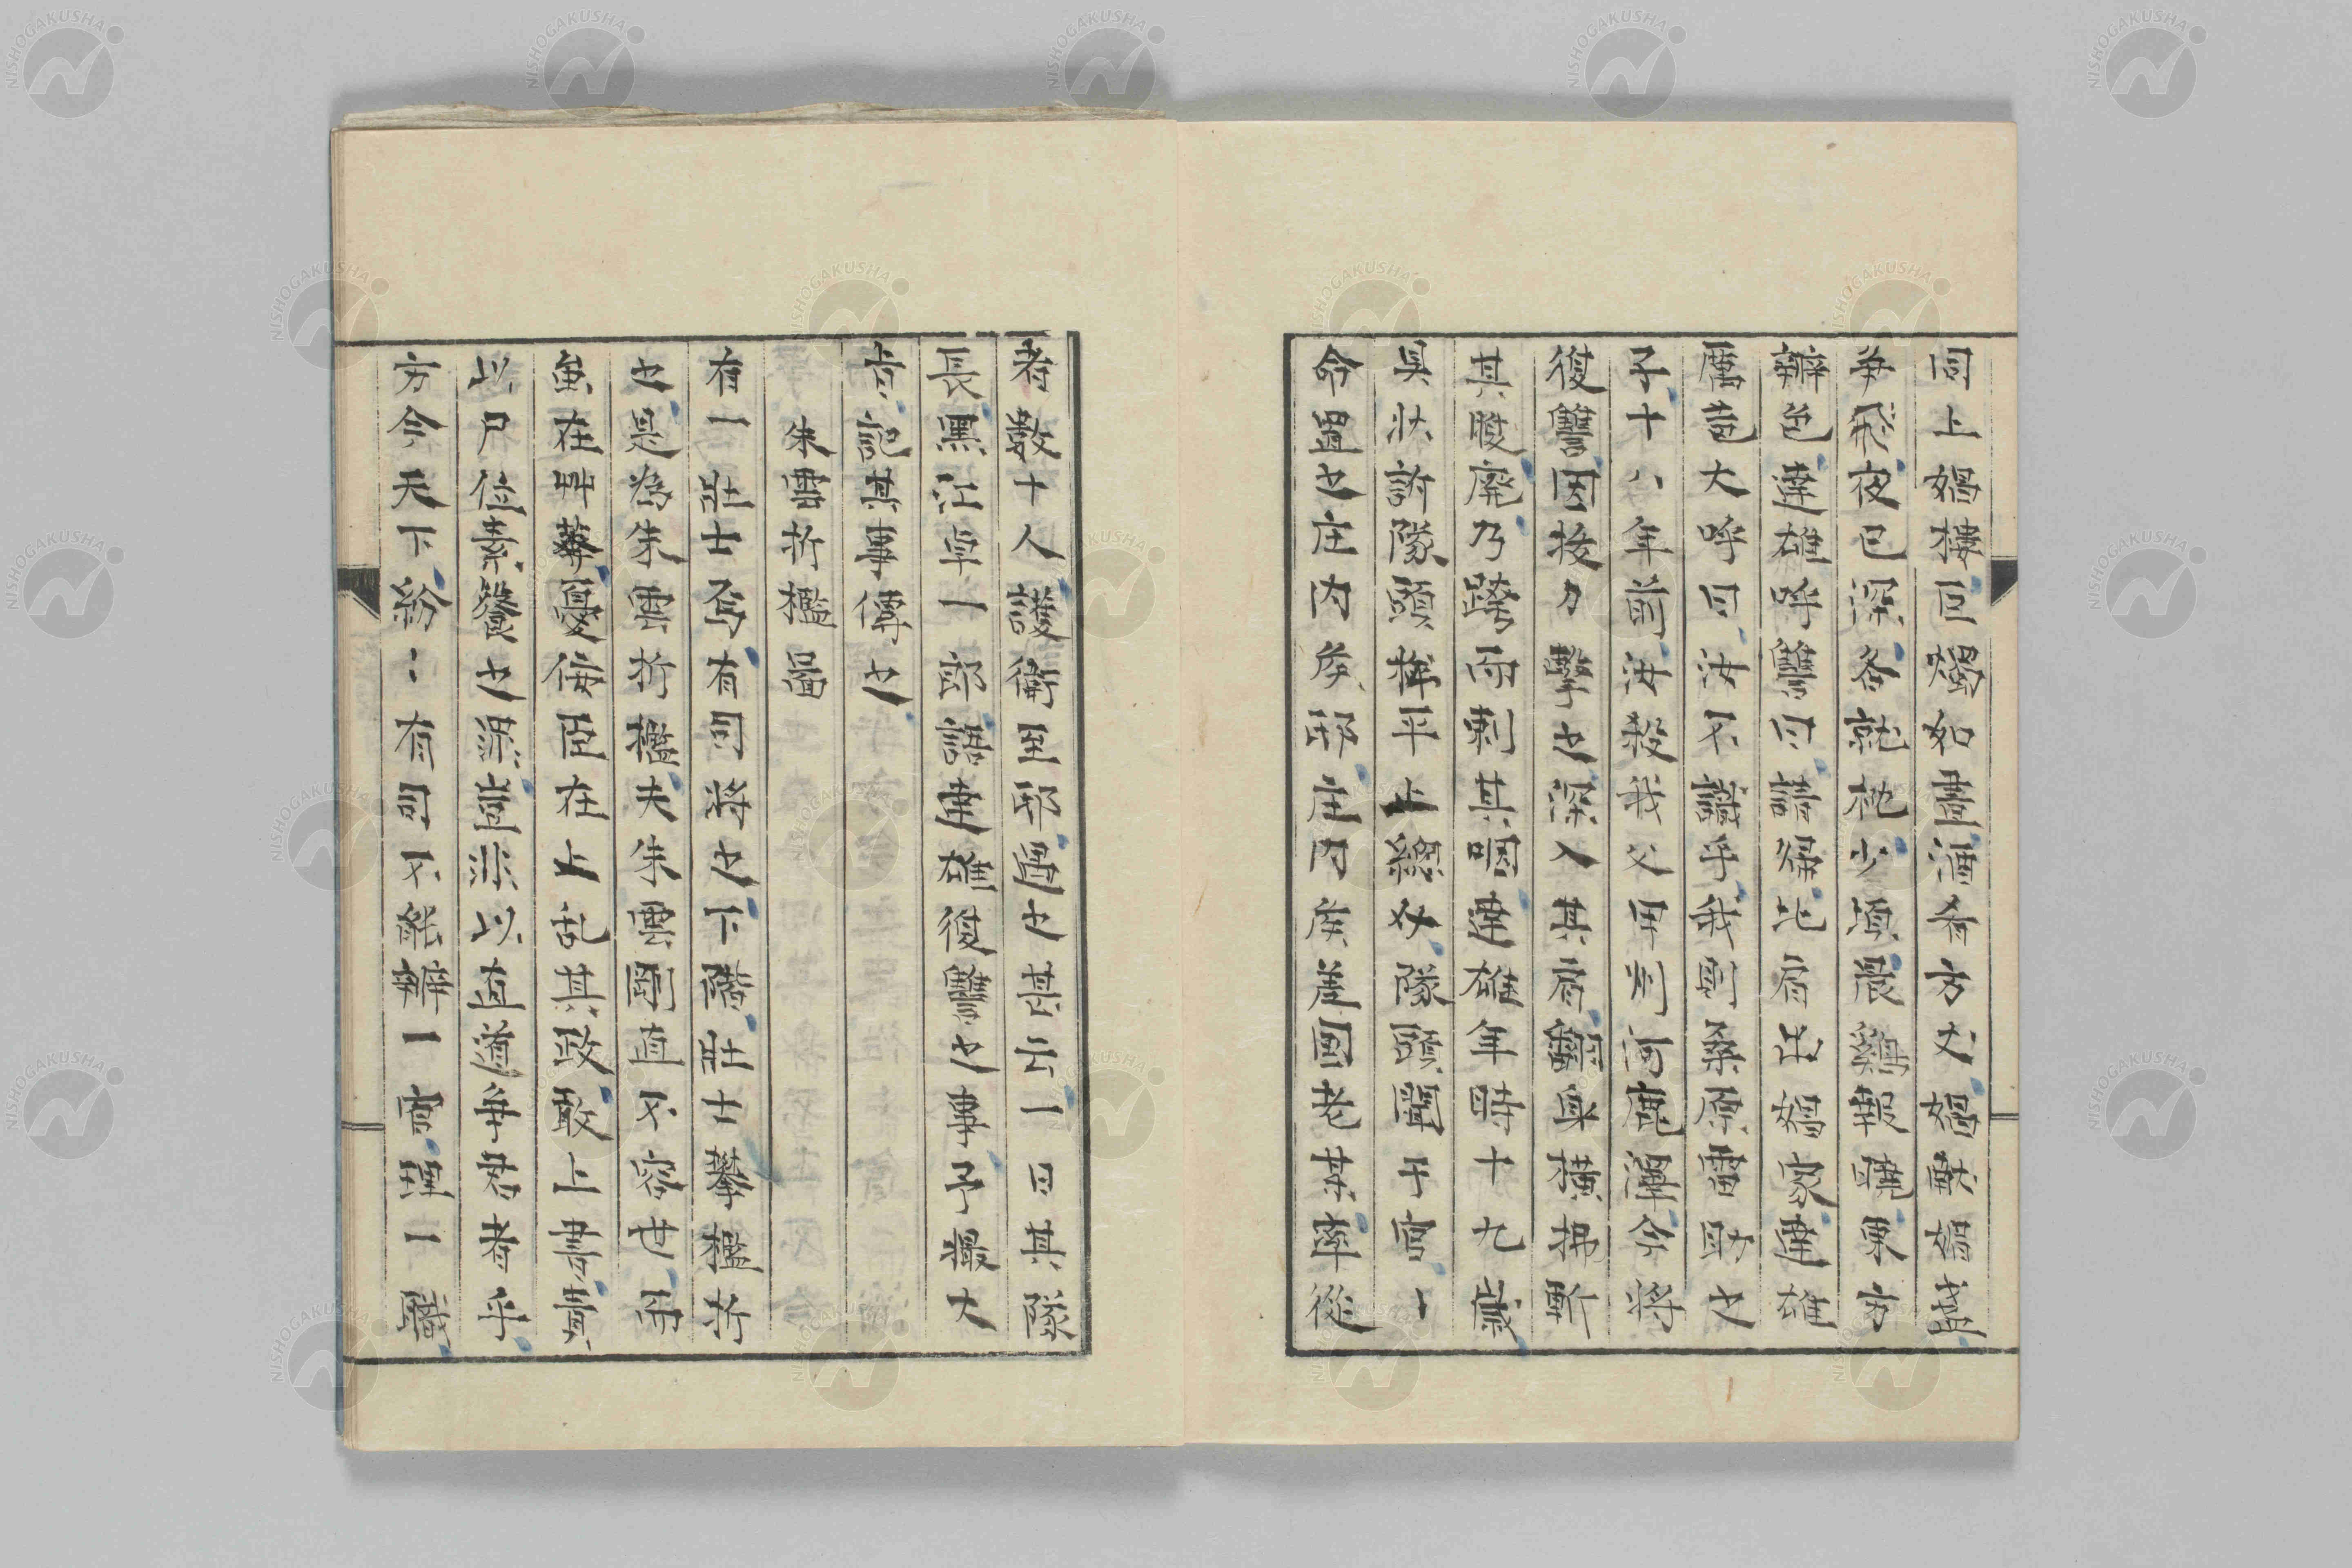 同上娼樓巨燭如晝酒肴方丈娼献娼盞
争飛夜已深各就枕少頃晨鷄報曉東方
辨色達雄呼讐曰請歸比肩出娼家達雄
厲色大呼曰汝不識乎我則桑原雷助之
子十八年前汝殺我父用則河鹿澤今将
復讐因抜刀擊之深入其肩讐與横拂斬
其股廃乃踏而刺其咽達雄年時十九歳
具状訴隊頭構平上総々隊頭聞于官々
命置之庄内矦邸庄内矦差国老某率從
者数十人護衛至邸遇之甚厚一日其隊
長黒江卓一郎語達雄復讐之事予最大
也記其事傳之
朱雲折檻圖
有一壯士焉有司将之下階壯士攀檻折
之是為朱雲折檻夫朱雲剛直不容世用
雖在艸莽憂侫臣在上乱其政敢上書責
以尸位素餐之洪豈非以直道争君者乎
方今天下紛々有司不能辨一事理一職
NISHOGAKUSHA